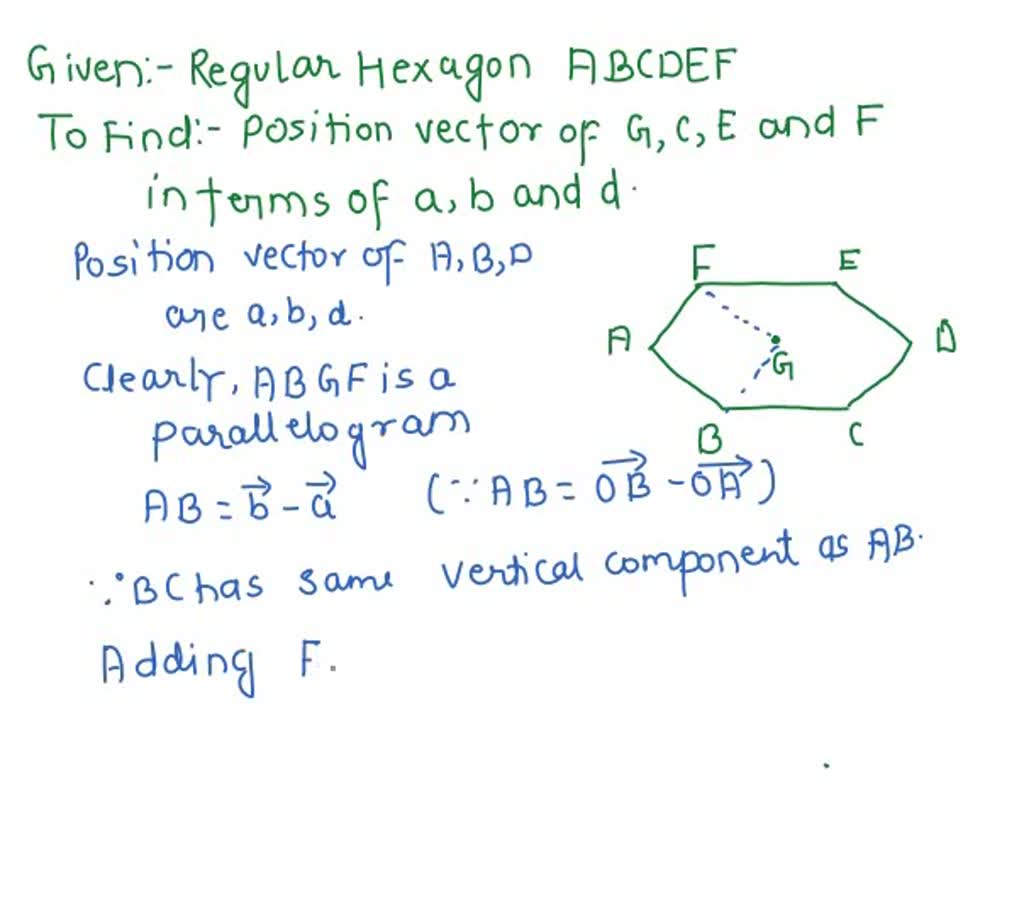 Given:- Regular Hexagon ABCDEF
To Find:- Position vector of G, C, E and F
in terms of a, b and d.
Position vector of A, B, D
are a, b, d.
F E
A D
G
B C
Clearly, ABGF is a
parallelogram
AB = b⃗ - a⃗ (∵ AB = OB⃗ - OA⃗)
∵ BC has same vertical component as AB.
Adding F.